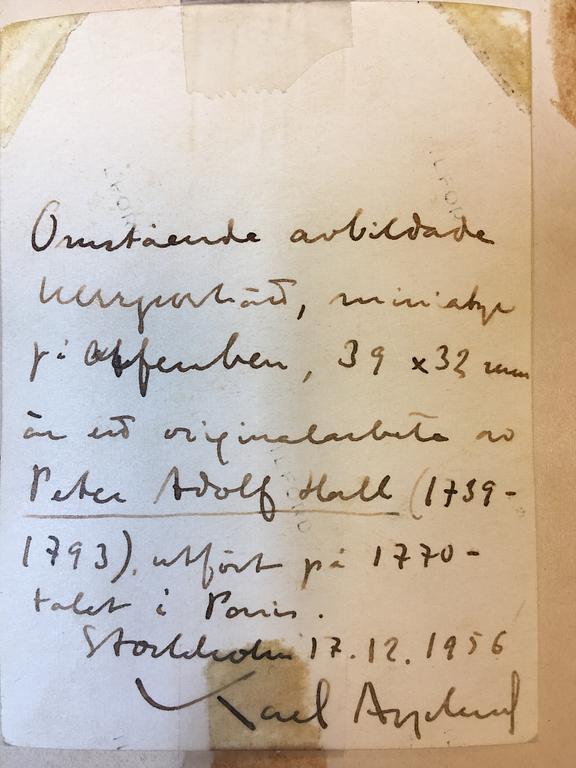 Omstående avbildade
herrporträtt, miniatyr
på elfenben, 39 x 32 mm
är ett originalarbete av
Peter Adolf Hall (1739-
1793), utfört på 1770-
talet i Paris.
Stockholm 17.12.1956
Karl Asplund